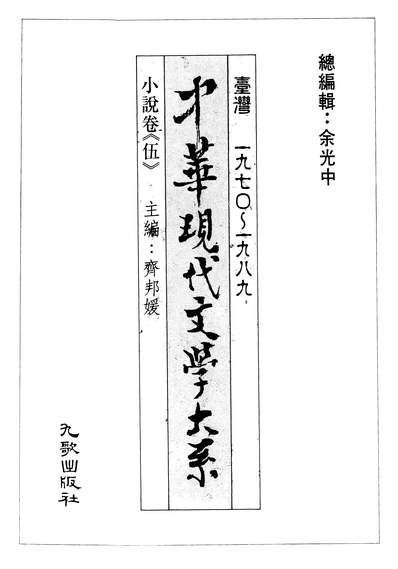 總編輯：余光中
臺灣 一九七〇～一九八九
中華現代文學大系
小說卷《伍》 主編：齊邦媛
九歌出版社